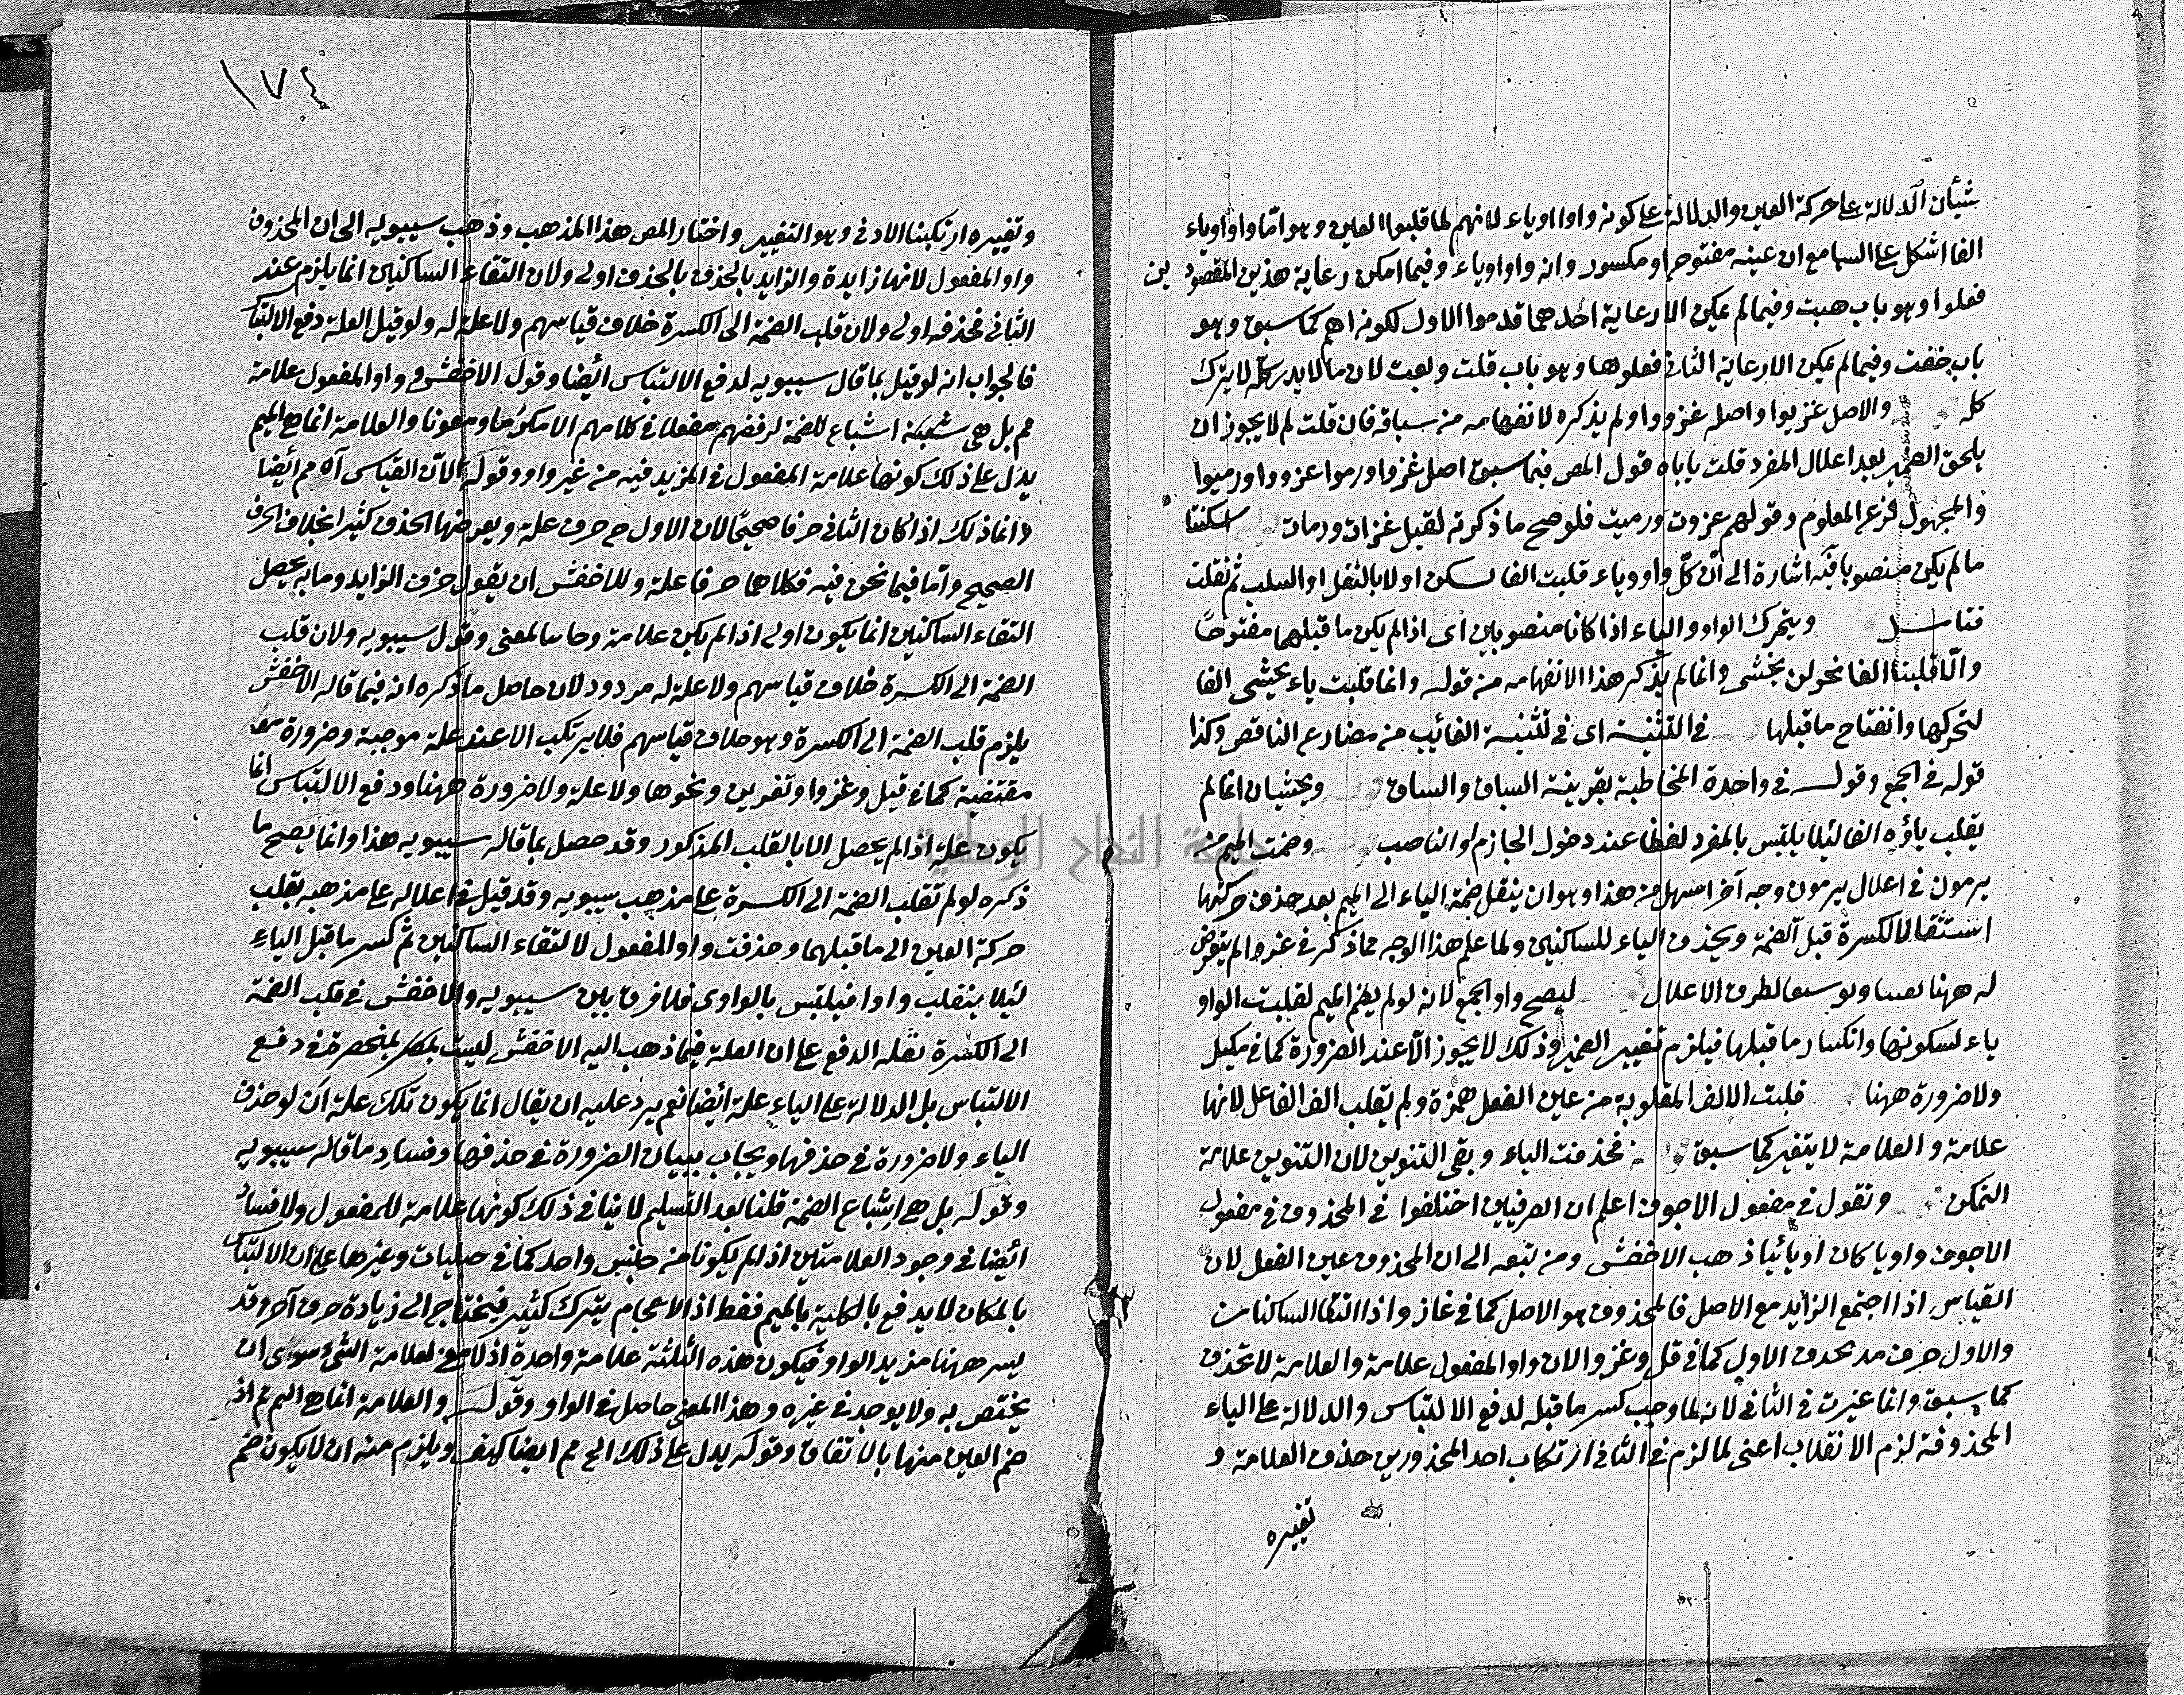 شيأن الدلالة على حركة العين والدلالة على كونه واوا او ياء لانهم لما قلبوا العين وهو اما واو او ياء
الفا اشكل على السامع ان عينه مفتوح او مكسور وانه واو او ياء وفيما امكن رعاية هذين المقصودين
فعلوا وهو باب هبت وفيما لم يمكن الا رعاية احدهما قدموا الاول لكونه اهم كما سبق وهو
باب خفت وفيما لم يمكن الا رعاية الثاني فعلوها وهو باب قلت وبعت لان ما لا يدرك كله لا يترك
كله والاصل غزيوا واصله غزووا ولم يذكره لانفهامه من سباقه فان قلت لم لا يجوز ان
يلحق الضمير بعد اعلال المفرد قلت ياباه قول المص فيما سبق اصل غزوا ورموا غزووا ورميوا
والمجهول فرع المعلوم وقولهم غزوت ورميت فلو صح ما ذكرته لقيل غزات ورمات اسكنتا
ما لم يكن منصوبا فيه اشارة الى ان كل واو وياء قلبت الفا اسكن اولا بالنقل او السلب ثم نقلت
فتامل ويتحرك الواو والياء اذا كانا منصوبين اى اذا لم يكن ما قبلهما مفتوحا
والا قلبتا الفا نحو لن يخشى وانما لم يذكر هذا الانفهامه من قوله وانما قلبت ياء يخشى الفا
لتحركها وانفتاح ما قبلها في التثنية اى في تثنية الغائب من مضارع الناقص وكذا
قوله في الجمع وقوله في واحدة المخاطبة بقرينة السباق والساق ويخشيان انما لم
يقلب ياؤه الفا لئلا يلتبس بالمفرد لفظا عند دخول الجازم او الناصب وضمت الميم من
يرمون في اعلال يرمون وجه آخر اسهل من هذا وهو ان ينقل ضمة الياء الى الميم بعد حذف حركتها
استثقالا لكسرة قبل الضمة ويحذف الياء للساكنين ولما علم هذا الوجه مما ذكر في غزوا لم يتعرض
له ههنا وتوسعا لطرق الاعلال ليصح واو الجمع لانه لو لم يضم الميم لقلبت الواو
ياء لسكونها وانكسار ما قبلها فيلزم تغيير الضمير وذلك لا يجوز الا عند الضرورة كما في مكيل
ولا ضرورة ههنا قلبت الالف المقلوبة من عين الفعل همزة ولم يقلب الف الفاعل لانها
علامة والعلامة لا يتغير كما سبق فحذفت الياء وبقى التنوين لان التنوين علامة
التمكن وتقول في مفعول الاجوف اعلم ان الصرفيين اختلفوا في المحذوف في مفعول
الاجوف واويا كان او يائيا ذهب الاخفش ومن تبعه الى ان المحذوف عين الفعل لان
القياس اذا اجتمع الزايد مع الاصل فالمحذوف هو الاصل كما في غاز واذا التقا الساكنان
والاول حرف مد يحذف الاول كما في قل وغزوا لان واو المفعول علامة والعلامة لا تحذف
كما سبق وانما غيرت في الثاني لانه لما وجب كسر ما قبله لدفع الالتباس والدلالة على الياء
المحذوفة لزم الانقلاب اعنى لما لزم في الثاني ارتكاب احد المحذورين حذف العلامة و
تغييره
١٧٤
وتغييره ارتكبنا الادنى وهو التغيير واختار المص هذا المذهب وذهب سيبويه الى ان المحذوف
واو المفعول لانها زايدة والزايد بالحذف اولى ولان التقاء الساكنين انما يلزم عند
الثاني فحذفه اولى ولان قلب الضمة الى الكسرة خلاف قياسهم ولا علة له ولو قيل العلة دفع الالتباس
فالجواب انه لو قيل بما قال سيبويه لدفع الالتباس ايضا وقول الاخفش واو المفعول علامة
مم بل هي اشباع للضمة لرفضهم مفعلا في كلامهم الا مكرما ومعونا والعلامة انما هي الميم
يدل على ذلك كونها علامة المفعول في المزيد فيه من غير واو وقوله الان القياس آه مم ايضا
وانما ذلك اذا كان الثاني حرفا صحيحا لان الاول ح حرف علة ويعرضها الحذف كثيرا بخلاف الحرف
الصحيح واما فيما نحن فيه فكلاهما حرفا علة وللاخفش ان يقول حرف الزايد وما به يحصل
التقاء الساكنين انما يكون اولى اذا لم يكن علامة وقول سيبويه ولان قلب
الضمة الى الكسرة خلاف قياسهم ولا علة له مردود لان حاصل ما ذكره انه فيما قاله الاخفش
يلزم قلب الضمة الى الكسرة وهو خلاف قياسهم فلا يرتكب الا عند علة موجبة وضرورة
مقتضية كما في قيل وغزوا وتغزين ونحوها ولا علة ولا ضرورة ههنا ودفع الالتباس انما
يكون علة اذا لم يحصل الا بالقلب المذكور وقد حصل بما قاله سيبويه هذا وانما يصح ما
ذكره لو لم تقلب الضمة الى الكسرة على مذهب سيبويه وقد قيل في اعلاله على مذهبه بقلب
حركة العين الى ما قبلهما وحذفت واو المفعول لالتقاء الساكنين ثم كسر ما قبل الياء
لئلا ينقلب واوا فيلتبس بالواوى فلا فرق بين سيبويه والاخفش في قلب الضمة
الى الكسرة لعلة الدفع على ان العلة فيما ذهب اليه الاخفش ليست بمنحصرة في دفع
الالتباس بل الدلالة على الياء علة ايضا نعم يرد عليه ان يقال انما يكون تلك علة ان لو حذف
الياء ولا ضرورة في حذفها ويجاب ببيان الضرورة في حذفها وفساد ما قاله سيبويه
وقوله بل هي اشباع الضمة قلنا بعد التسليم لا ينافي ذلك كونها علامة للمفعول ولا فساد
ايضا في وجود العلامتين اذا لم يكونا من جنس واحد كما في حبليات وغيرها على ان الالتباس
بالمكان لا يدفع بالكلية بالميم فقط اذ الاعجام يترك كثيرا فيحتاج الى زيادة حرف آخر وقد
يسر ههنا مزيد الواو فيكون هذه الثلثة علامة واحدة اذ لا معنى لعلامة الشئ سوى ان
يختص به ولا يوجد في غيره وهذا المعنى حاصل في الواو وقوله والعلامة انما هي الميم مم اذ
ضم العين منها بالاتفاق وقوله يدل على ذلك الى مم ايضا كيف ويلزم منه ان لا يكون ضم
جامعة النجاح الوطنية